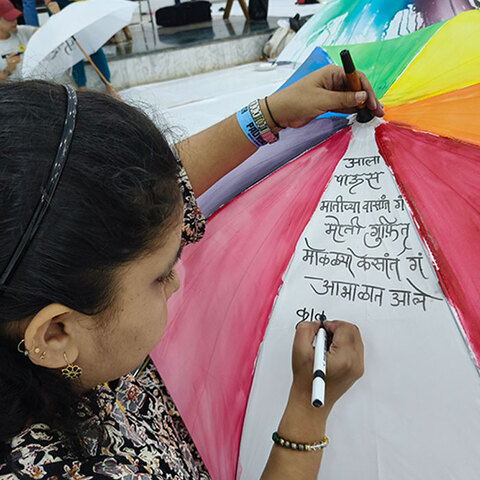 आला
पाऊस
मातीच्या वासांत गं
मोती गुंफित
मोकळ्या केसांत गं
आभाळात आले